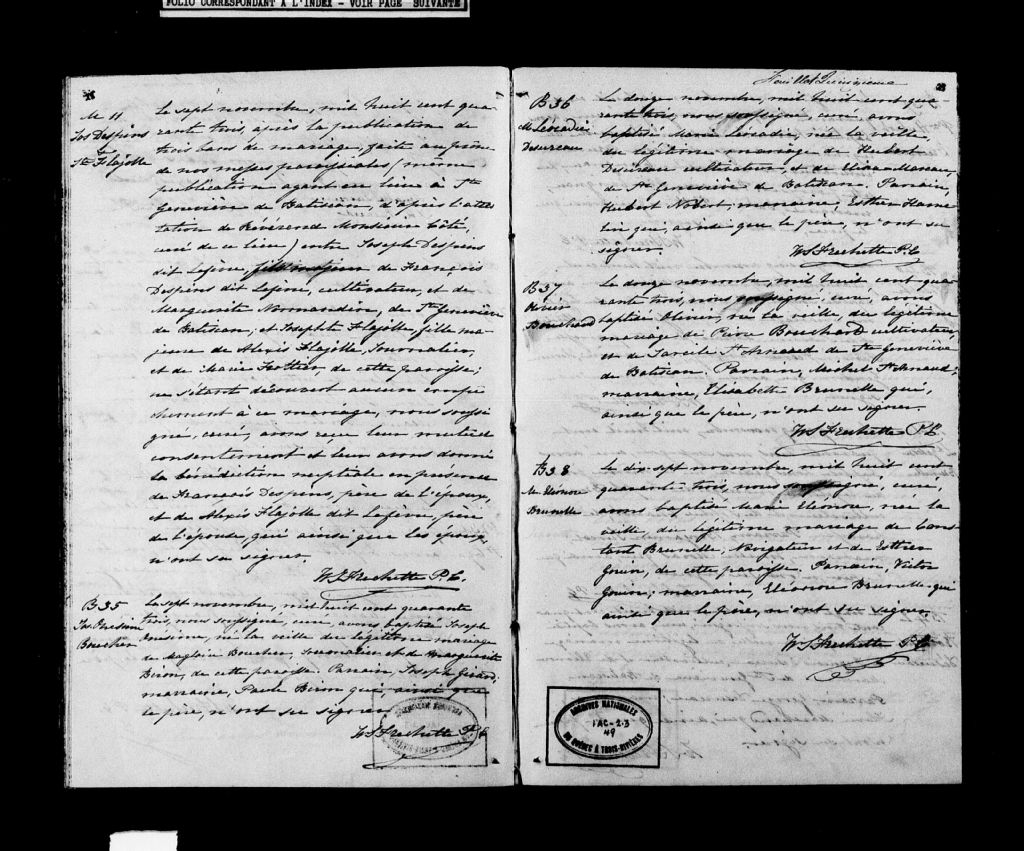 FOLIO CORRESPONDANT A L'INDEX - VOIR PAGE SUIVANTE
M 11
Jos Despins
&
Jte Flajolle
Le sept novembre, mil huit cent qua-
rante trois, après la publication de
trois bans de mariage, faite au prône
de nos messes paroissiales (même
publication ayant eu lieu à Ste
Geneviève de Batiscan, d'après l'attes
tation de Révérend Monsieur Côté,
curé de ce lieu) entre Joseph Despins
dit Lafône, fils majeur de François
Despins dit Lafône, cultivateur, et de
Marguerite Normandin, de Ste Geneviève
de Batiscan, et Josephte Flajolle, fille ma-
jeure de Alexis Flajolle, Journalier,
et de Marie Trottier, de cette paroisse;
ne s'étant découvert aucun empê
chement à ce mariage, nous soussi
gné, curé, avons reçu leur mutuel
consentement et leur avons donné
la bénédiction nuptiale en présence
de François Despins, père de l'époux,
et de Alexis Flajolle dit Lafône, père
de l'épouse, qui ainsi que les époux,
n'ont su signer.
W S Frechette P.C.
B 35
Jos. Onesime
Boucher
Le sept novembre, mil huit cent quarante
trois, nous soussigné, curé, avons baptisé Joseph
Onésime, né la veille du légitime mariage
de Magloire Boucher, Journalier et de Marguerite
Biron, de cette paroisse. Parrain, Joseph Girard;
marraine, Paule Biron qui, ainsi que
le père, n'ont su signer.
W S Frechette P.C.
Feuillet Quinzième
B 36
M Léocadie
Desureau
Le douze novembre, mil huit cent qua-
rante trois, nous soussigné, curé, avons
baptisé Marie Léocadie, née la veille,
du légitime mariage de Hubert
Desureau cultivateur, et de Eliza Moreau,
de Ste Geneviève de Batiscan. Parrain,
Hubert Nobert; marraine, Esther Hame
lin qui, ainsi que le père, n'ont su
signer.
W S Frechette P.C.
B 37
Olivier
Bouchard
Le douze novembre, mil huit cent qua-
rante trois, nous soussigné, curé, avons
baptisé Olivier, né la veille, du légitime
mariage de Pierre Bouchard cultivateur,
et de Tarcile St Arnaud de Ste Geneviève
de Batiscan. Parrain, Michel St Arnaud;
marraine, Elisabette Brunelle qui,
ainsi que le père, n'ont su signer.
W S Frechette P.C.
B 38
M Eléonore
Brunelle
Le dix-sept novembre, mil huit cent
quarante-trois, nous soussigné, curé,
avons baptisé Marie Eléonore, née la
veille du légitime mariage de Cons
tant Brunelle, Navigateur et de Esther
Gouin, de cette paroisse. Parrain, Victor
Gouin; marraine, Eléonore Brunelle qui
ainsi que le père, n'ont su signer.
W S Frechette P.C.
ARCHIVES NATIONALES
1AC-2-3
49
DU QUÉBEC À TROIS-RIVIÈRES